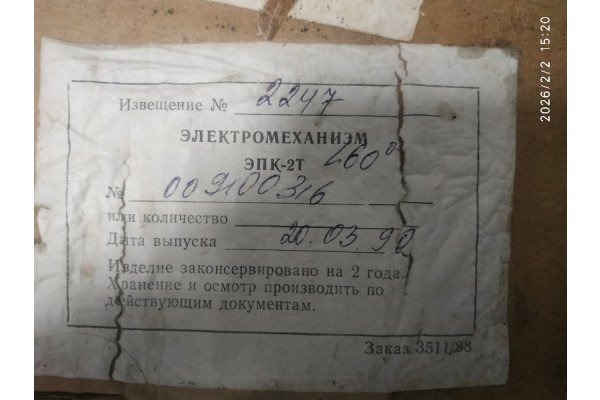 Извещение № 2247
ЭЛЕКТРОМЕХАНИЗМ
ЭПК-2Т 260°
№ 009100316
или количество
Дата выпуска 20.03.90
Изделие законсервировано на 2 года.
Хранение и осмотр производить по
действующим документам.
Заказ 3511/88
2026/2/2 15:20